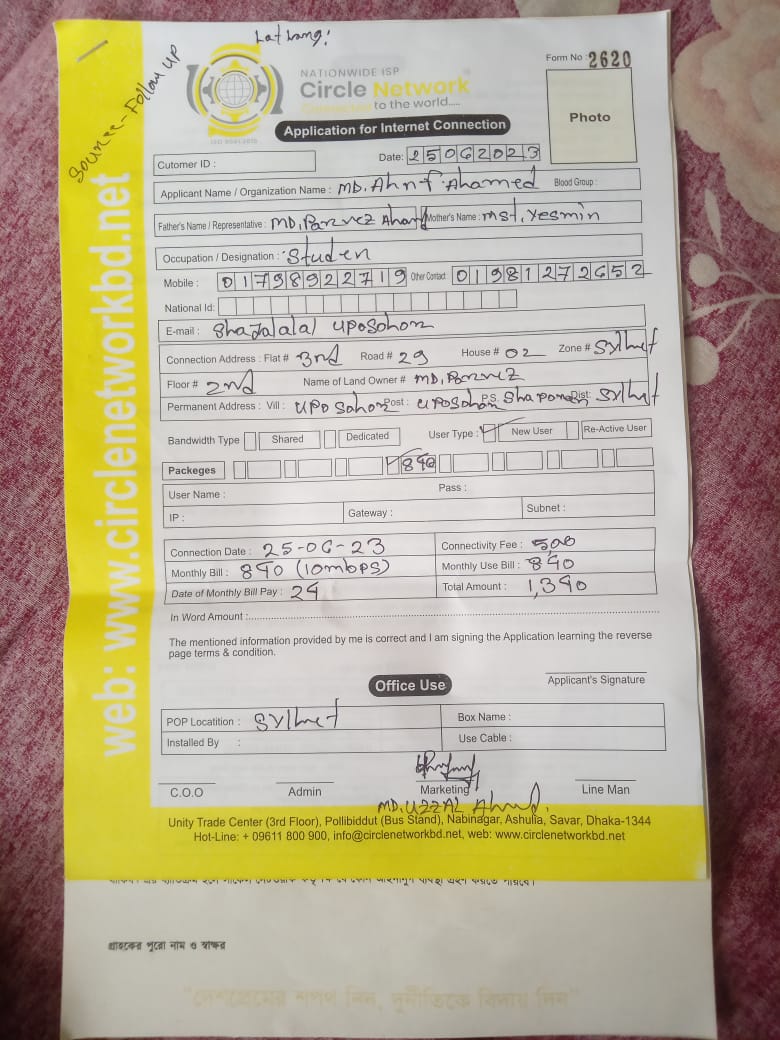 Lat Lang:
Source - Follow UP
NATIONWIDE ISP
Circle Network
Connected to the world.....
ISO 9001:2015
Form No : 2620
Photo
Application for Internet Connection
Cutomer ID :
Date: 25062023
Applicant Name / Organization Name : MD. Ahnf Ahamed Blood Group :
Father's Name / Representative : MD, Parvez Aham Mother's Name : mst, Yesmin
Occupation / Designation : Studen
Mobile : 01798922719 Other Contact: 01981272652
National Id:
E-mail : Shajalalal UPOSohom
Connection Address : Flat # 3nd Road # 29 House # 02 Zone # Sylhet
Floor # 2nd Name of Land Owner # MD, Parvez
Permanent Address : Vill : UPO Sohom Post : UPOSohom P.S. Shaporan Dist: Sylhet
Bandwidth Type Shared Dedicated User Type : ✓ New User Re-Active User
Packeges ✓ 840
User Name : Pass :
IP : Gateway : Subnet :
Connection Date : 25-06-23 Connectivity Fee : 500
Monthly Bill : 840 (10mbps) Monthly Use Bill : 840
Date of Monthly Bill Pay : 24 Total Amount : 1,340
In Word Amount :
The mentioned information provided by me is correct and I am signing the Application learning the reverse
page terms & condition.
Applicant's Signature
Office Use
POP Locatition : Sylhet Box Name :
Installed By : Use Cable :
C.O.O Admin Marketing Line Man
MD. UZZAL Ahmd.
Unity Trade Center (3rd Floor), Pollibiddut (Bus Stand), Nabinagar, Ashulia, Savar, Dhaka-1344
Hot-Line: + 09611 800 900, info@circlenetworkbd.net, web: www.circlenetworkbd.net
web: www.circlenetworkbd.net
গ্রাহকের পুরো নাম ও স্বাক্ষর
"দেশপ্রেমের শপথ নিন, দুর্নীতিকে বিদায় দিন"